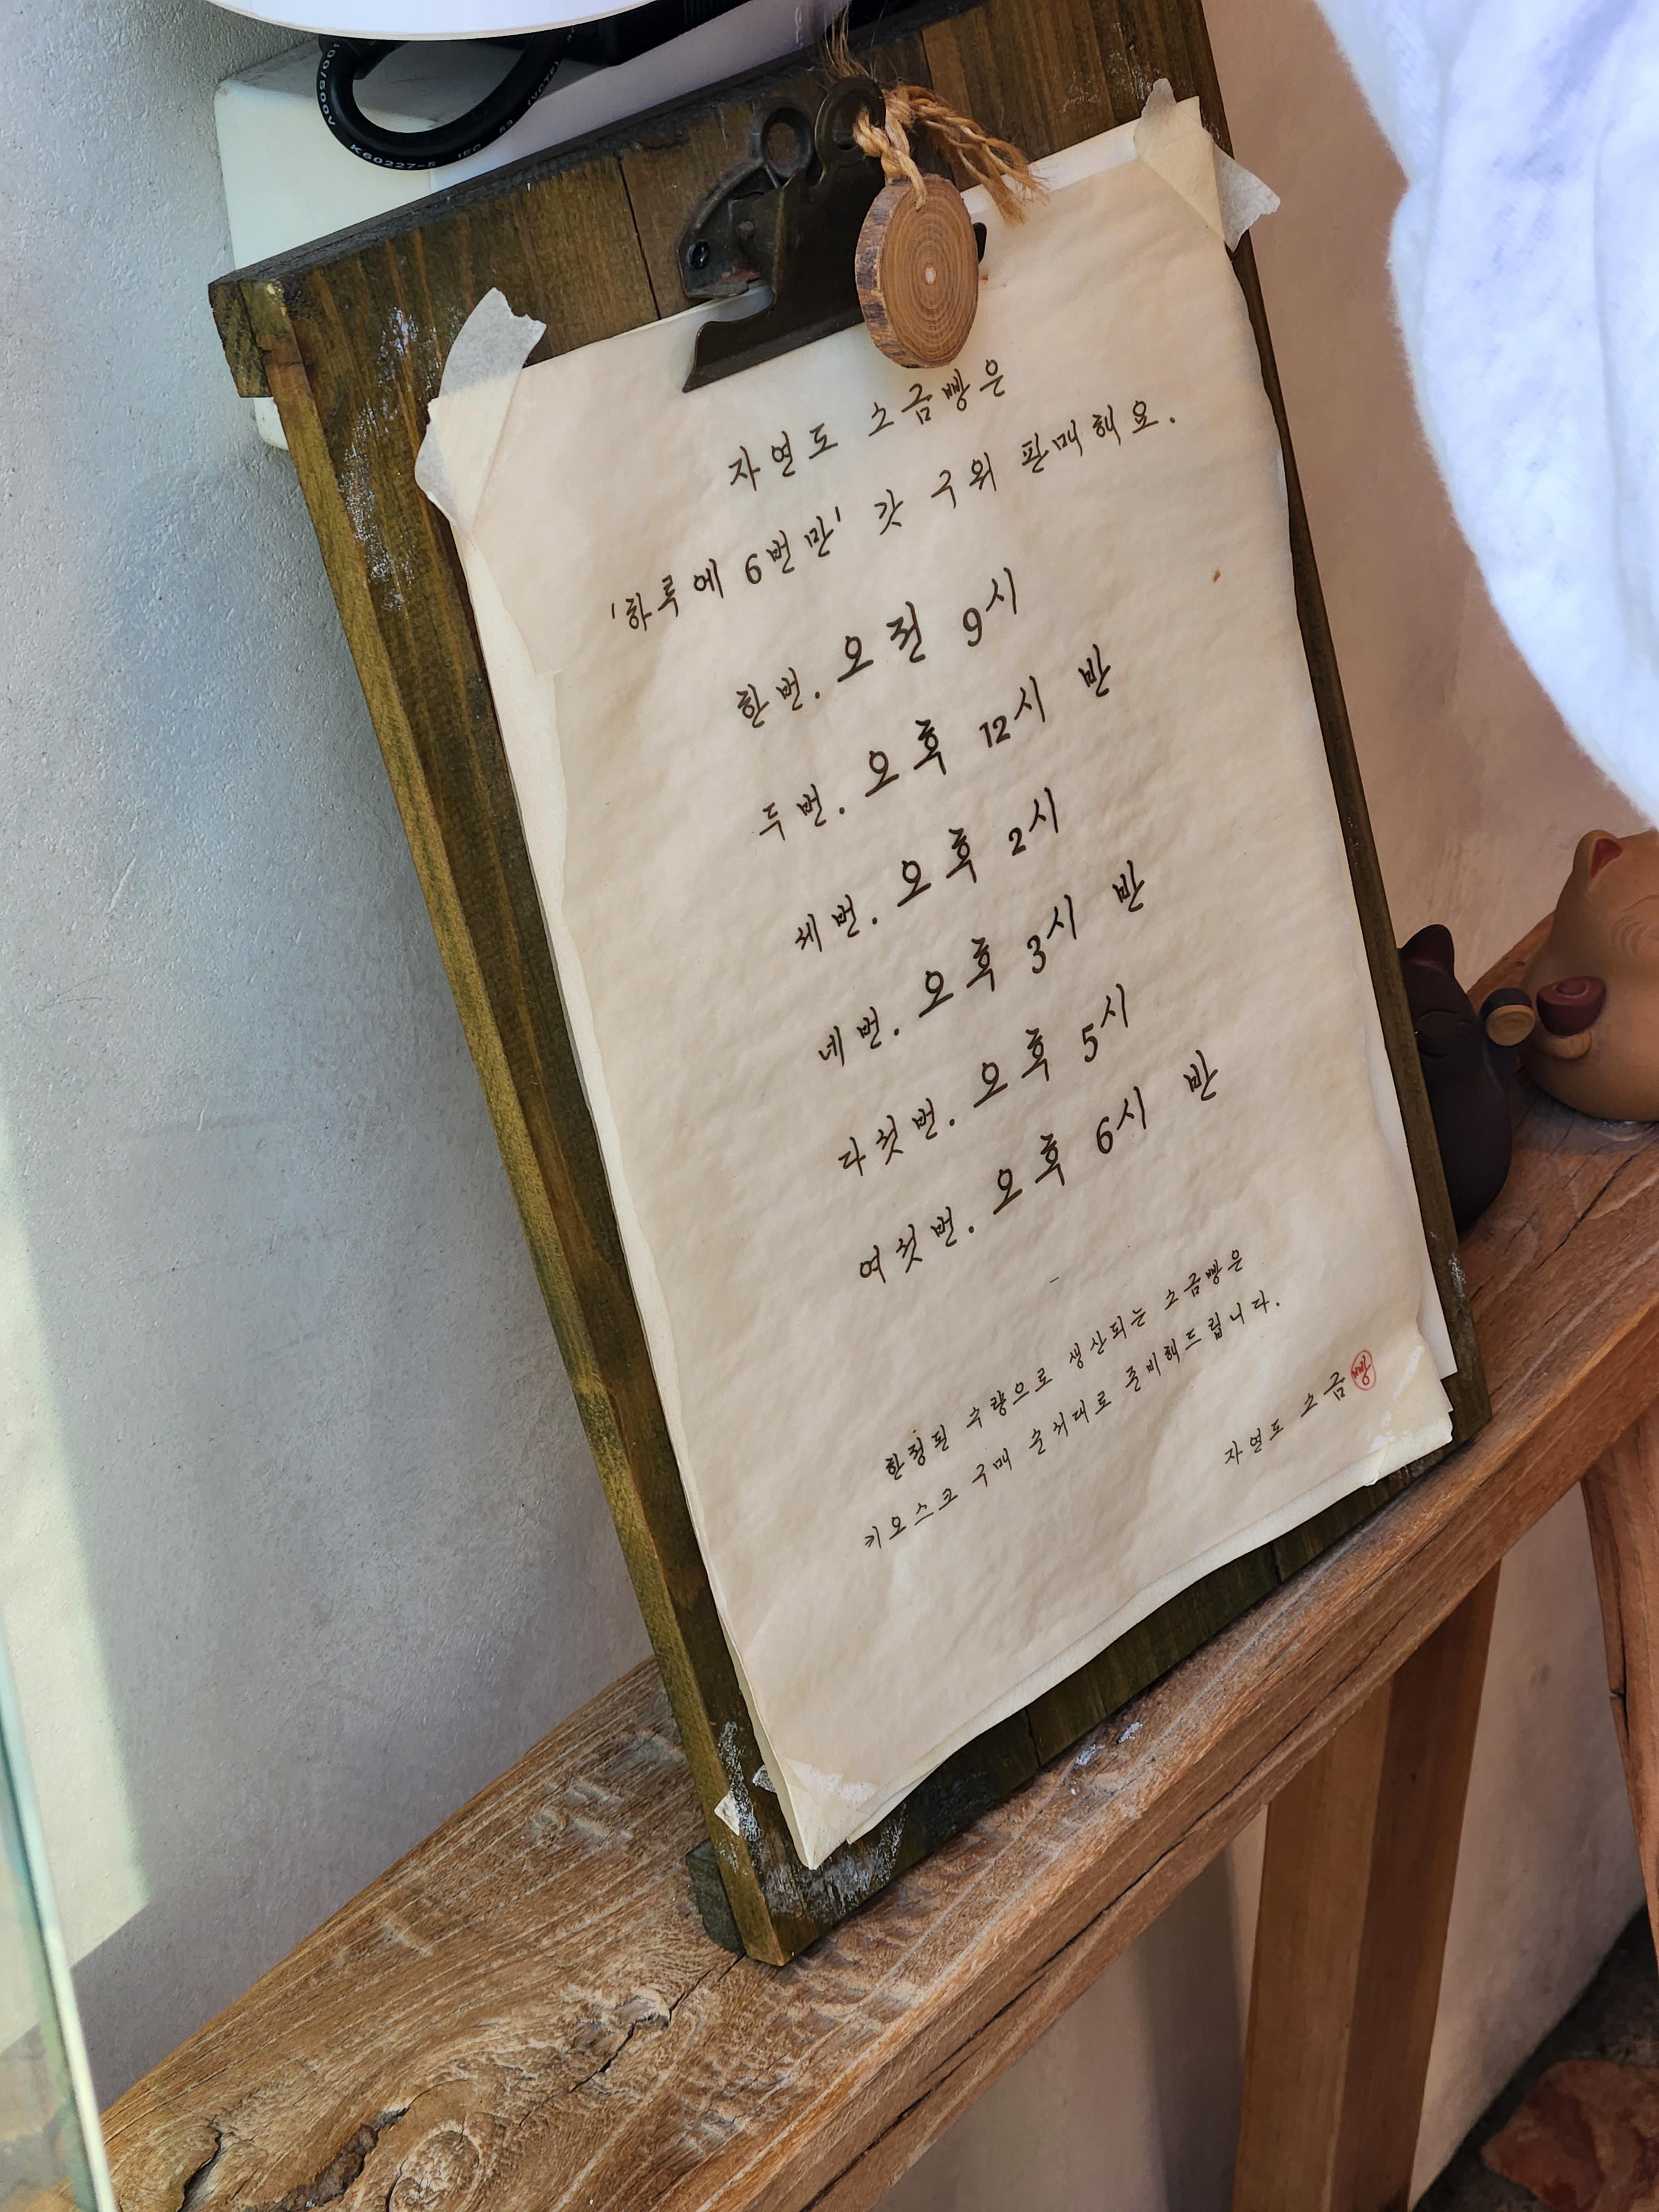 10/500V
K60227-5 IEC 53 (VCTF)
자연도 소금빵은
'하루에 6번만' 갓 구워 판매해요.
한번. 오전 9시
두번. 오후 12시 반
세번. 오후 2시
네번. 오후 3시 반
다섯번. 오후 5시
여섯번. 오후 6시 반
한정된 수량으로 생산되는 소금빵은
키오스크 구매 순서대로 준비해드립니다.
자연도 소금빵